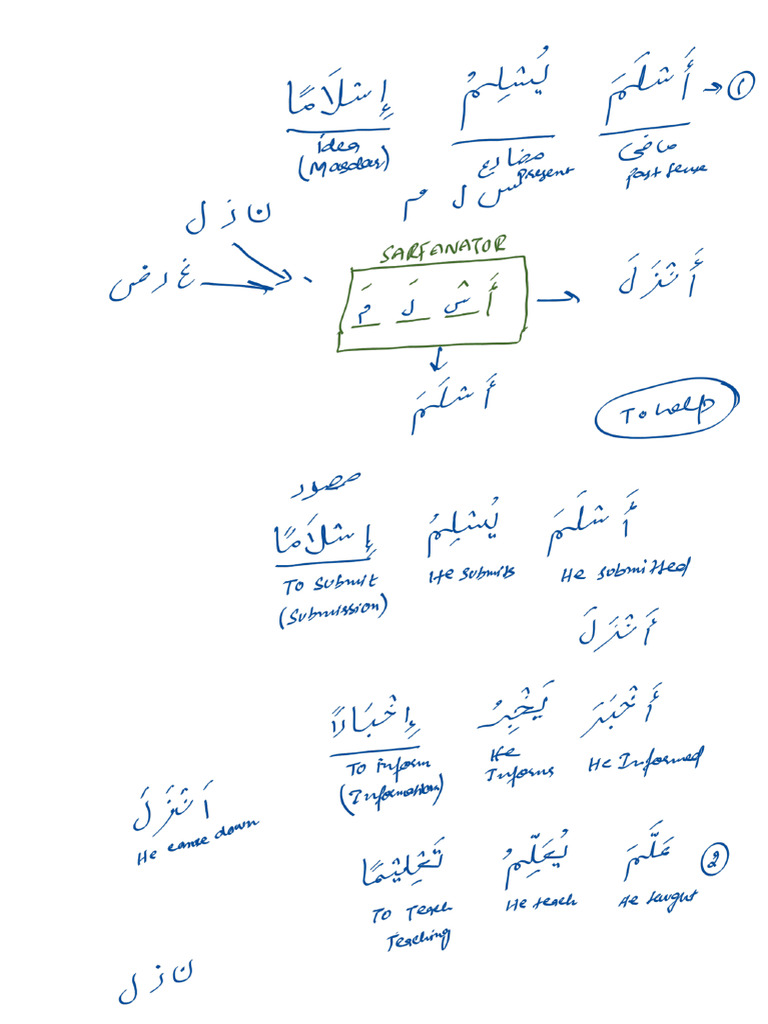 أَسْلَمَ يُسْلِمُ إِسْلَامًا
→ ①
ماضی مضارع Idea
Past Tense Present (Masdar)
س ل م
ن ز ل
SARFANATOR
غ ر ض
أَ سْ لَ مَ → أَنْزَلَ
أَسْلَمَ
To help
أَسْلَمَ يُسْلِمُ إِسْلَامًا
He submitted He submits To submit
(Submission)
أَنْزَلَ
أَخْبَرَ يَخْبِرُ إِخْبَارًا
He Informed He Informs To inform
(Information)
اَنْزَلَ
He came down
② عَلَّمَ يُعَلِّمُ تَعْلِيْمًا
He taught He teach To Teach
Teaching
ن ز ل